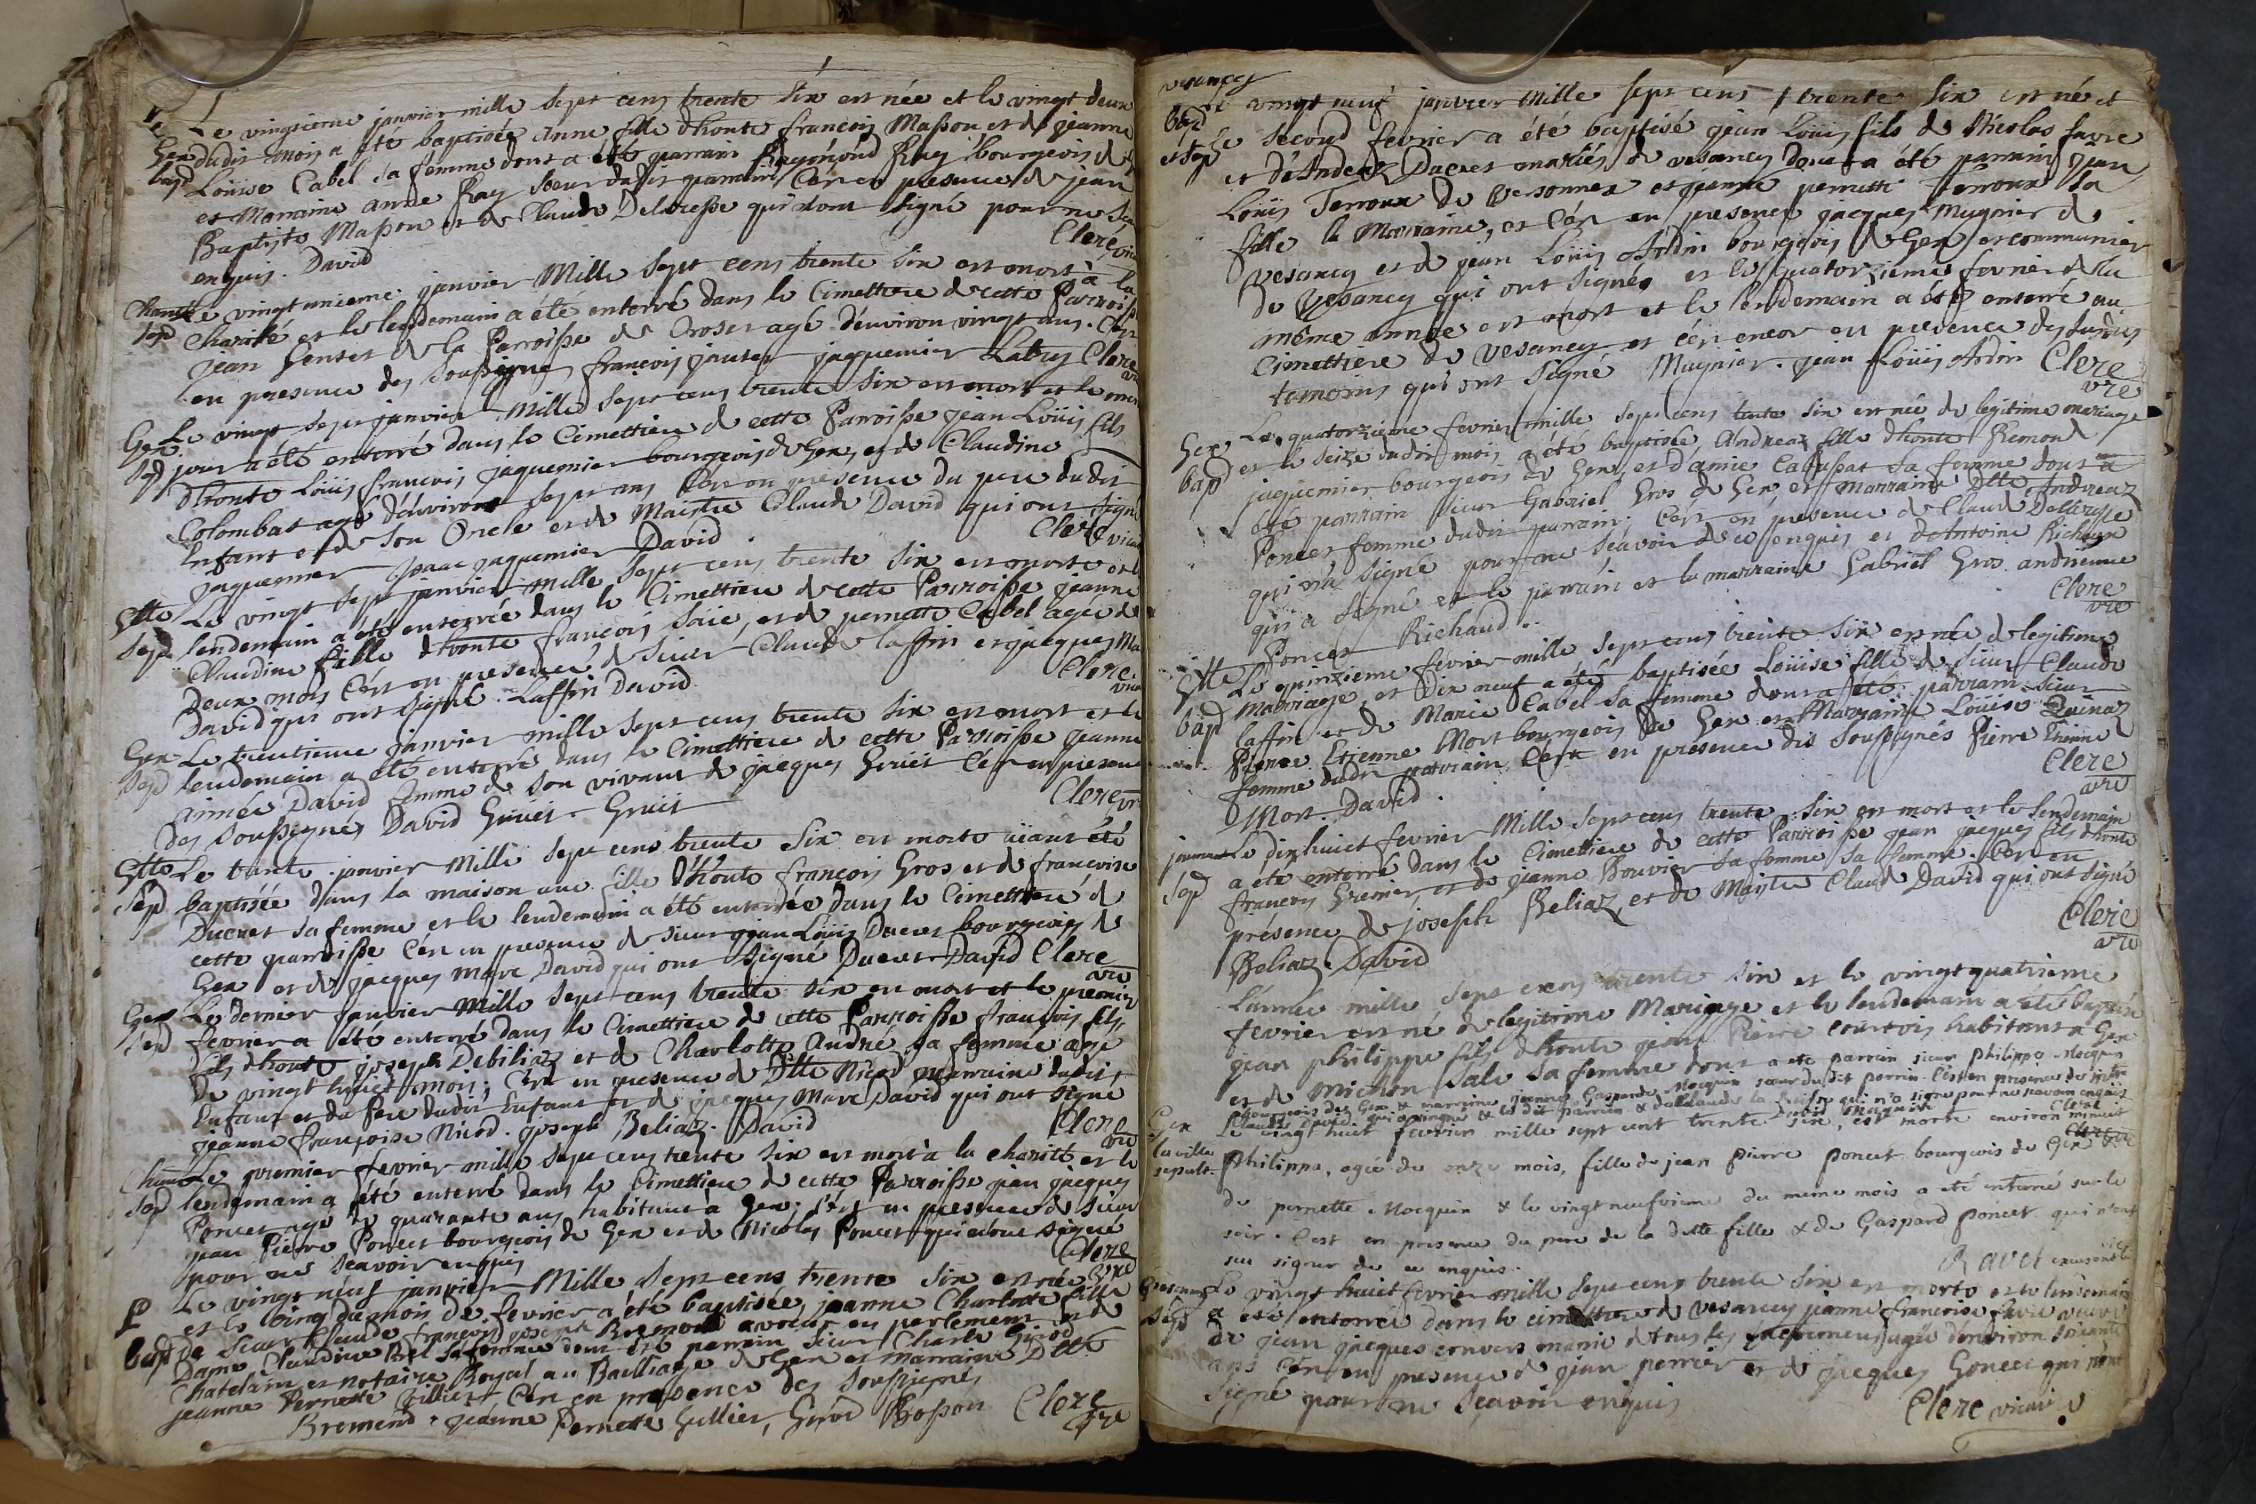 Le vingtieme janvier mille sept cens trente six est née et le vingt deux
Gex dudit mois a été baptisée Anne fille d'honte françois Masson et de jeanne
bap Loüise Cabel sa femme dont a été parrain Raymond Ray bourgeois de
et Marraine anne Ray soeur dudit parrain C'est en presence de jean
Baptiste Masson et de Claude Delacresse qui n'ont signé pour ne
enquis. David Clerc
Charité Le vingt unieme janvier Mille sept cens trente six est mort à la
sep Charité et le lendemain a été enterré dans le Cimettiere de cette Parroisse
jean de la Parroisse de Croset agé d'environ vingt ans. C'est
en presence des soussignés françois jaques jaquemier Clerc
Gex Le vingt sept janvier Mille sept cens trente six est mort et le même
sep jour a été enterré dans le Cimettiere de cette Paroisse jean Loüis fils
d'honte Loüis françois jaquemier bourgeois de Gex, et de Claudine
Colombat agé d'environ sept ans C'est en presence du pere dudit
Enfant et de son Oncle et de Maistre Claude David qui ont signé
jaquemier Isaac jaquemier David Clerc vicaire
Le vingt sept janvier mille sept cens trente six est morte et le
Sep lendemain a été enterrée dans le Cimettiere de cette Parroisse jeanne
Claudine fille d'honte françois et de pernette Cabel agée de
Deux mois C'est en presence de Sieur Claude Laffin et jacques Ma
David qui ont signé. Laffin David Clerc
Gex Le trentieme janvier mille sept cens trente six est mort et le
Sep lendemain a été enterré dans le Cimettiere de cette Parroisse jeanne
aimée David femme de son vivant de jacques Gruet C'est en presence
des soussignés David Gruet. Gruit Clerc vre
Le trente janvier Mille sept cens trente six est morte aiant été
Sep baptisée dans la maison une fille d'honte françois Gros et de francoise
Ducret sa femme et le lendemain a été enterrée dans le Cimettiere de
cette parroisse C'est en presence de sieur jean Loüis Ducret bourgeois de
Gex et de jacques Marc David qui ont signé Ducret David Clerc
vre
Gex Le dernier janvier Mille sept cens trente six est mort et le premier
Sep fevrier a été enterré dans le Cimettiere de cette Parroisse françois fils
fils d'honte joseph Debiliaz et de Charlotte André sa femme agé
De vingt huict mois, C'est en presence de Dlle Nicod marraine dudit
Enfant et du Pere dudit Enfant et de jacques Marc David qui ont signé
jeanne françoise Nicod. joseph Beliaz. David Clerc
vre
Charité Le premier fevrier mille sept cens trente six est mort à la charité et le
Sep lendemain a été enterré dans le Cimettiere de cette Parroisse jean jacques
Poncet agé de quarante ans habitant à Gex; c'est en presence de sieur
jean Pierre Poncet bourgeois de Gex et de Nicolas Poncet qui n'ont signé
pour ne sçavoir enquis Clerc
vre
Le vingt neuf janvier Mille sept cens trente six est née
et le Cinq du mois de fevrier a été baptisée, jeanne Charlotte fille
bap de Sieur Claude françois joseph Bremond avocat en parlement et de
Dame Claudine Bel sa femme dont été parrain sieur Charle Girod
Chatelain et notaire Royal au Bailliage de Gex et marraine Dlle
jeanne Pernette Gillier C'est en presence des soussignés
Bremond. jeanne Pernette Gullier, Girod Bosson Clerc
vre
vesancy
Le vingt neuf janvier Mille sept cens trente six est né et
bap le second fevrier a été baptisé jean Loüis fils de Nicolas favre
et sep et d'Andreaz Ducret mariés de vesancy dont a été parrain jean
Loüis Terroux de Versonnex et jeanne pernette Terroux sa
fille la Marraine, et c'est en presence jacques Mugnier de
vesancy et de jean Loüis Ardin bourgeois de Gex et communier
de Vesancy qui ont signés et le quatorzieme fevrier de la
même année est mort et le lendemain a été enterré au
Cimettiere de Vesancy et c'est encor en presence des susdits
temoins qui ont signé Mugnier. jean Loüis Ardin Clerc
vre
Gex Le quatorzieme fevrier mille sept cens trente six est née de legitime mariage
bap et le seize dudit mois a été baptisée Andreaz fille d'honte Remond
jaquemier bourgeois de Gex, et d'amie Catussat sa femme dont a
été parrain sieur Gabriel Gros de Gex, et Marraine Dlle Andreaz
Poncet femme dudit parrain, C'est en presence de Claude Delacresse
qui n'a signé pour ne sçavoir de ce enquis et d'Antoine Richaud
qui a signé et le parrain et la marraine Gabriel Gros. andrienne
Poncet Richaud. Clerc
vre
Le quinzieme fevrier mille sept cens trente six est née de legitime
bap Marriage, et dix neuf a été baptisée Loüise fille de sieur Claude
Laffin et de Marie Cabel sa femme dont a été parrain sieur
Pierre Etienne Mort bourgeois de Gex et Marraine Loüise Quinaz
femme dudit parrain C'est en presence des soussignés Pierre Etienne
Mort. David. Clerc
vre
Le dixhuict fevrier Mille sept cens trente six est mort et le lendemain
sep a été enterré dans le Cimettiere de cette Parroisse jean jacques fils d'honte
françois Grenier et de jeanne Bouvier sa femme sa femme. C'est en
présence de joseph Beliaz et de Maistre Claude David qui ont signé
Beliaz. David Clerc
vre
L'année mille sept cens trente six et le vingtquatrieme
fevrier est né de legitime Mariage et le lendemain a été baptisé
jean philippe fils d'honte jean Pierre Courtois habitant a Gex
et de Michon Sale sa femme dont a été parrain sieur Philippe Mocquin
bourgeois de Gex & marraine jeanne Gasparde Mocquin soeur dudit parrin. C'est en presence de
Gex Le vingt huit fevrier mille sept cent trente six, est morte environ minuit
la ville
sepult. Philippa, agée de onze mois, fille de jean pierre poncet bourgeois de Gex &
de pernette Mocquin & le vingt neufvieme du meme mois a été enterré sur le
soir. C'est en presence du pere de la ditte fille & de Gaspard poncet qui n'ont
su signer de ce enquis. Ravet
Le vingt huict fevrier mille sept cens trente six est morte et le lendemain
sep a été enterrée dans le cimettiere de vesancy jeanne françoise favre veuve
de jean jacques convers munie de tous les sacremens agée d'environ soixante
ans C'est en presence de jean perrier et de jacques Goncet qui n'ont
signé pour ne sçavoir enquis
Clerc vicaire